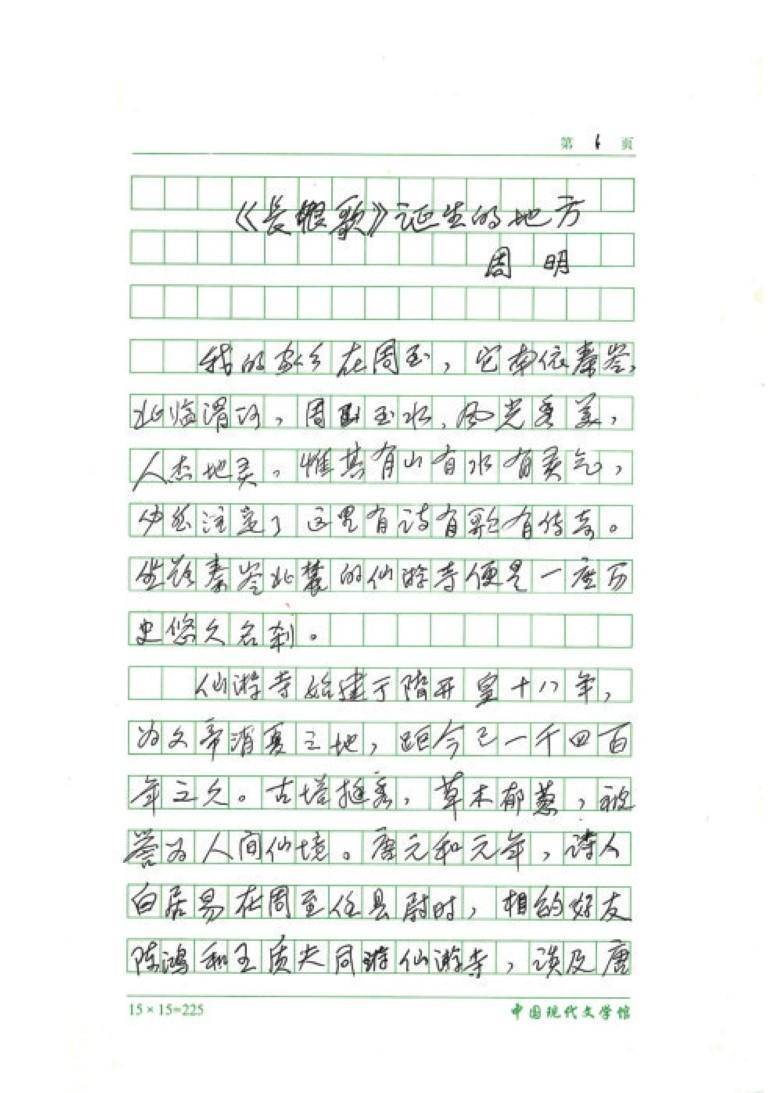 第 1 页
《长恨歌》诞生的地方
周 明
我的家乡在周至，它南依秦岭，
北临渭河，周围玉水，风光秀美，
人杰地灵。惟其有山有水有灵气，
注定了这里有诗有歌有传奇。
坐落秦岭北麓的仙游寺便是一座历
史悠久名刹。
仙游寺始建于隋开皇十八年，
为文帝消夏之地，距今已一千四百
年之久。古塔挺秀，草木郁葱，被
誉为人间仙境。唐元和元年，诗人
白居易在周至任县尉时，相约好友
陈鸿和王质夫同游仙游寺，谈及唐
15×15=225
中国现代文学馆